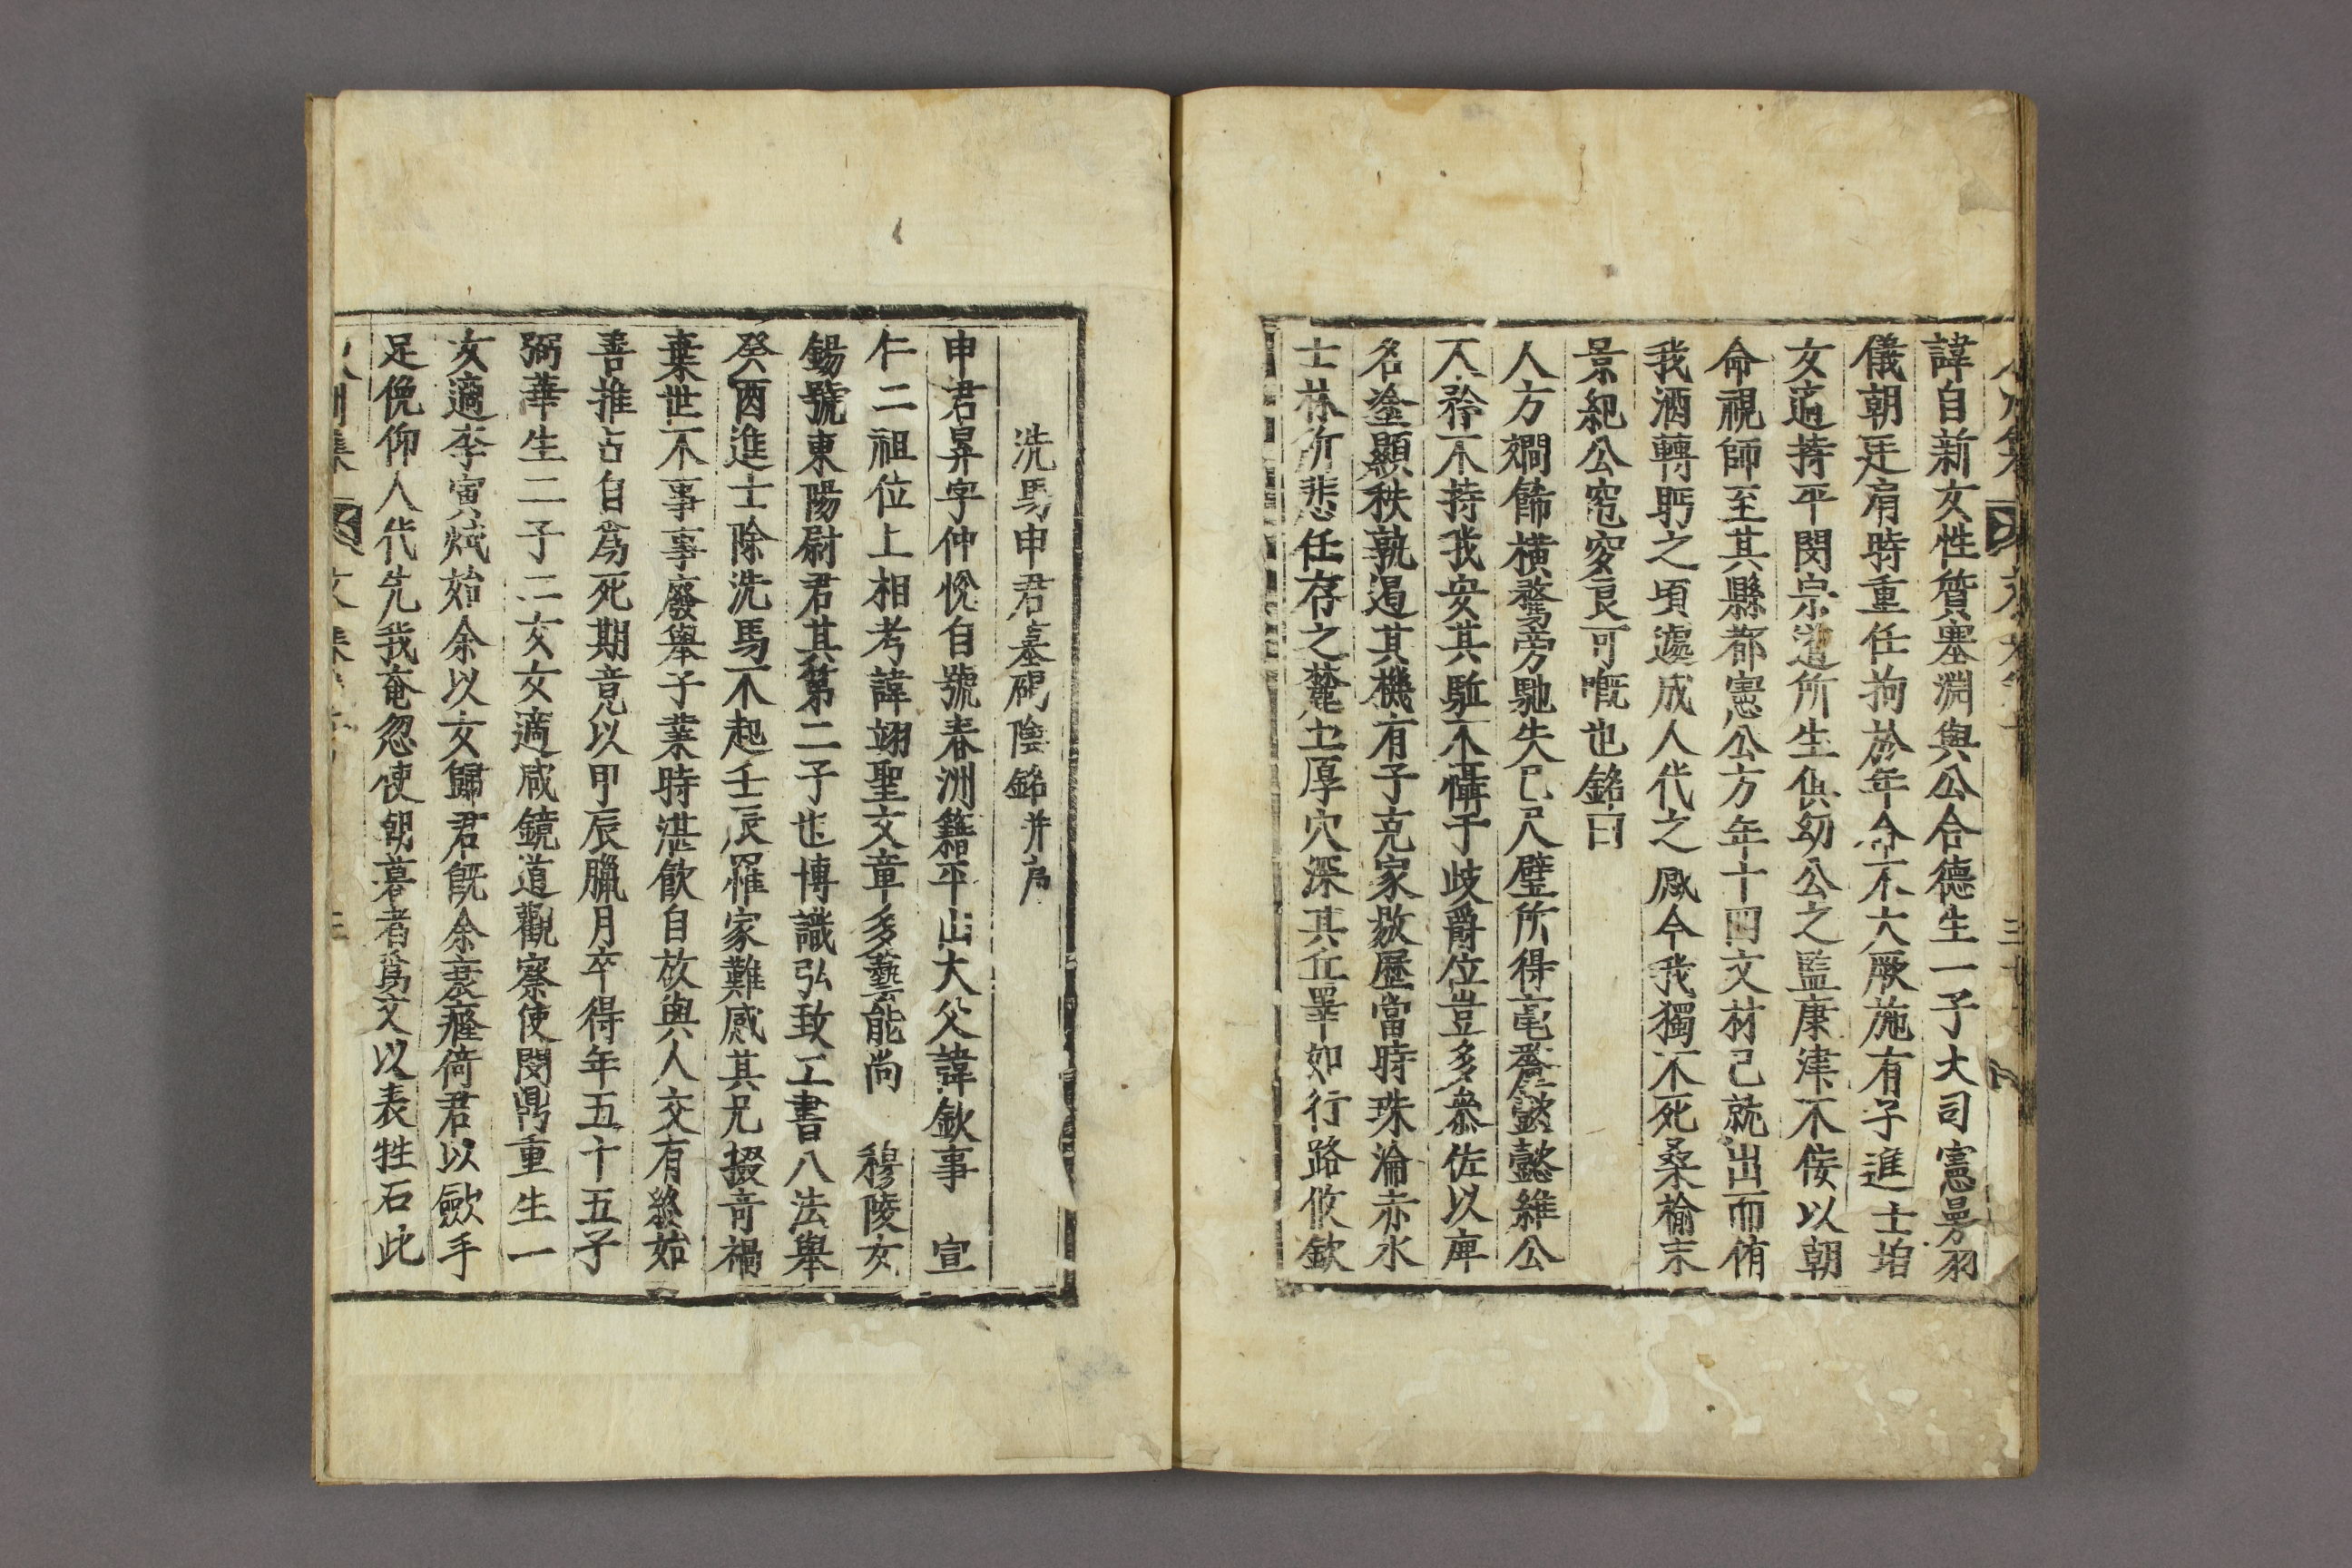 諱自新女性質塞淵與公合德生一子大司憲曼羽
儀朝廷肩時重任拘於年命不大厥施有子進士垍
女適持平閔宗道所生俱幼公之監康津不佞以朝
命視師至其縣都憲公方年十四文材已就出而侑
我酒轉眄之頃遽成人代之感今我獨不死桑榆末
景紀公窀穸良可慨也銘曰
人方斕餙橫騖旁馳失已尺璧所得毫氂懿懿維公
不矜不持我安其駈不懾于歧爵位豈多叅佐以庳
名塗顯秩孰遏其機有子克家敭歷當時珠淪赤水
士林所悲任存之麓土厚穴深其丘睪如行路攸欽
洗馬申君墓碣陰銘并序
申君昇字仲悅自號春洲籍平山大父諱欽事 宣
仁二祖位上相考諱翊聖文章多藝能尚 穆陵女
錫號東陽尉君其第二子也博識弘致工書八法舉
癸酉進士除洗馬不起壬辰罹家難慼其兄掇竒禍
棄世不事事廢舉子業時湛飲自放與人交有終始
善推占自爲死期竟以甲辰臘月卒得年五十五子
弼華生二子二女女適咸鏡道觀察使閔鼎重生一
女適李寅烒始余以女歸君旣余衰癃倚君以歛手
足俛仰人代先我奄忽使朝暮者爲文以表牲石此